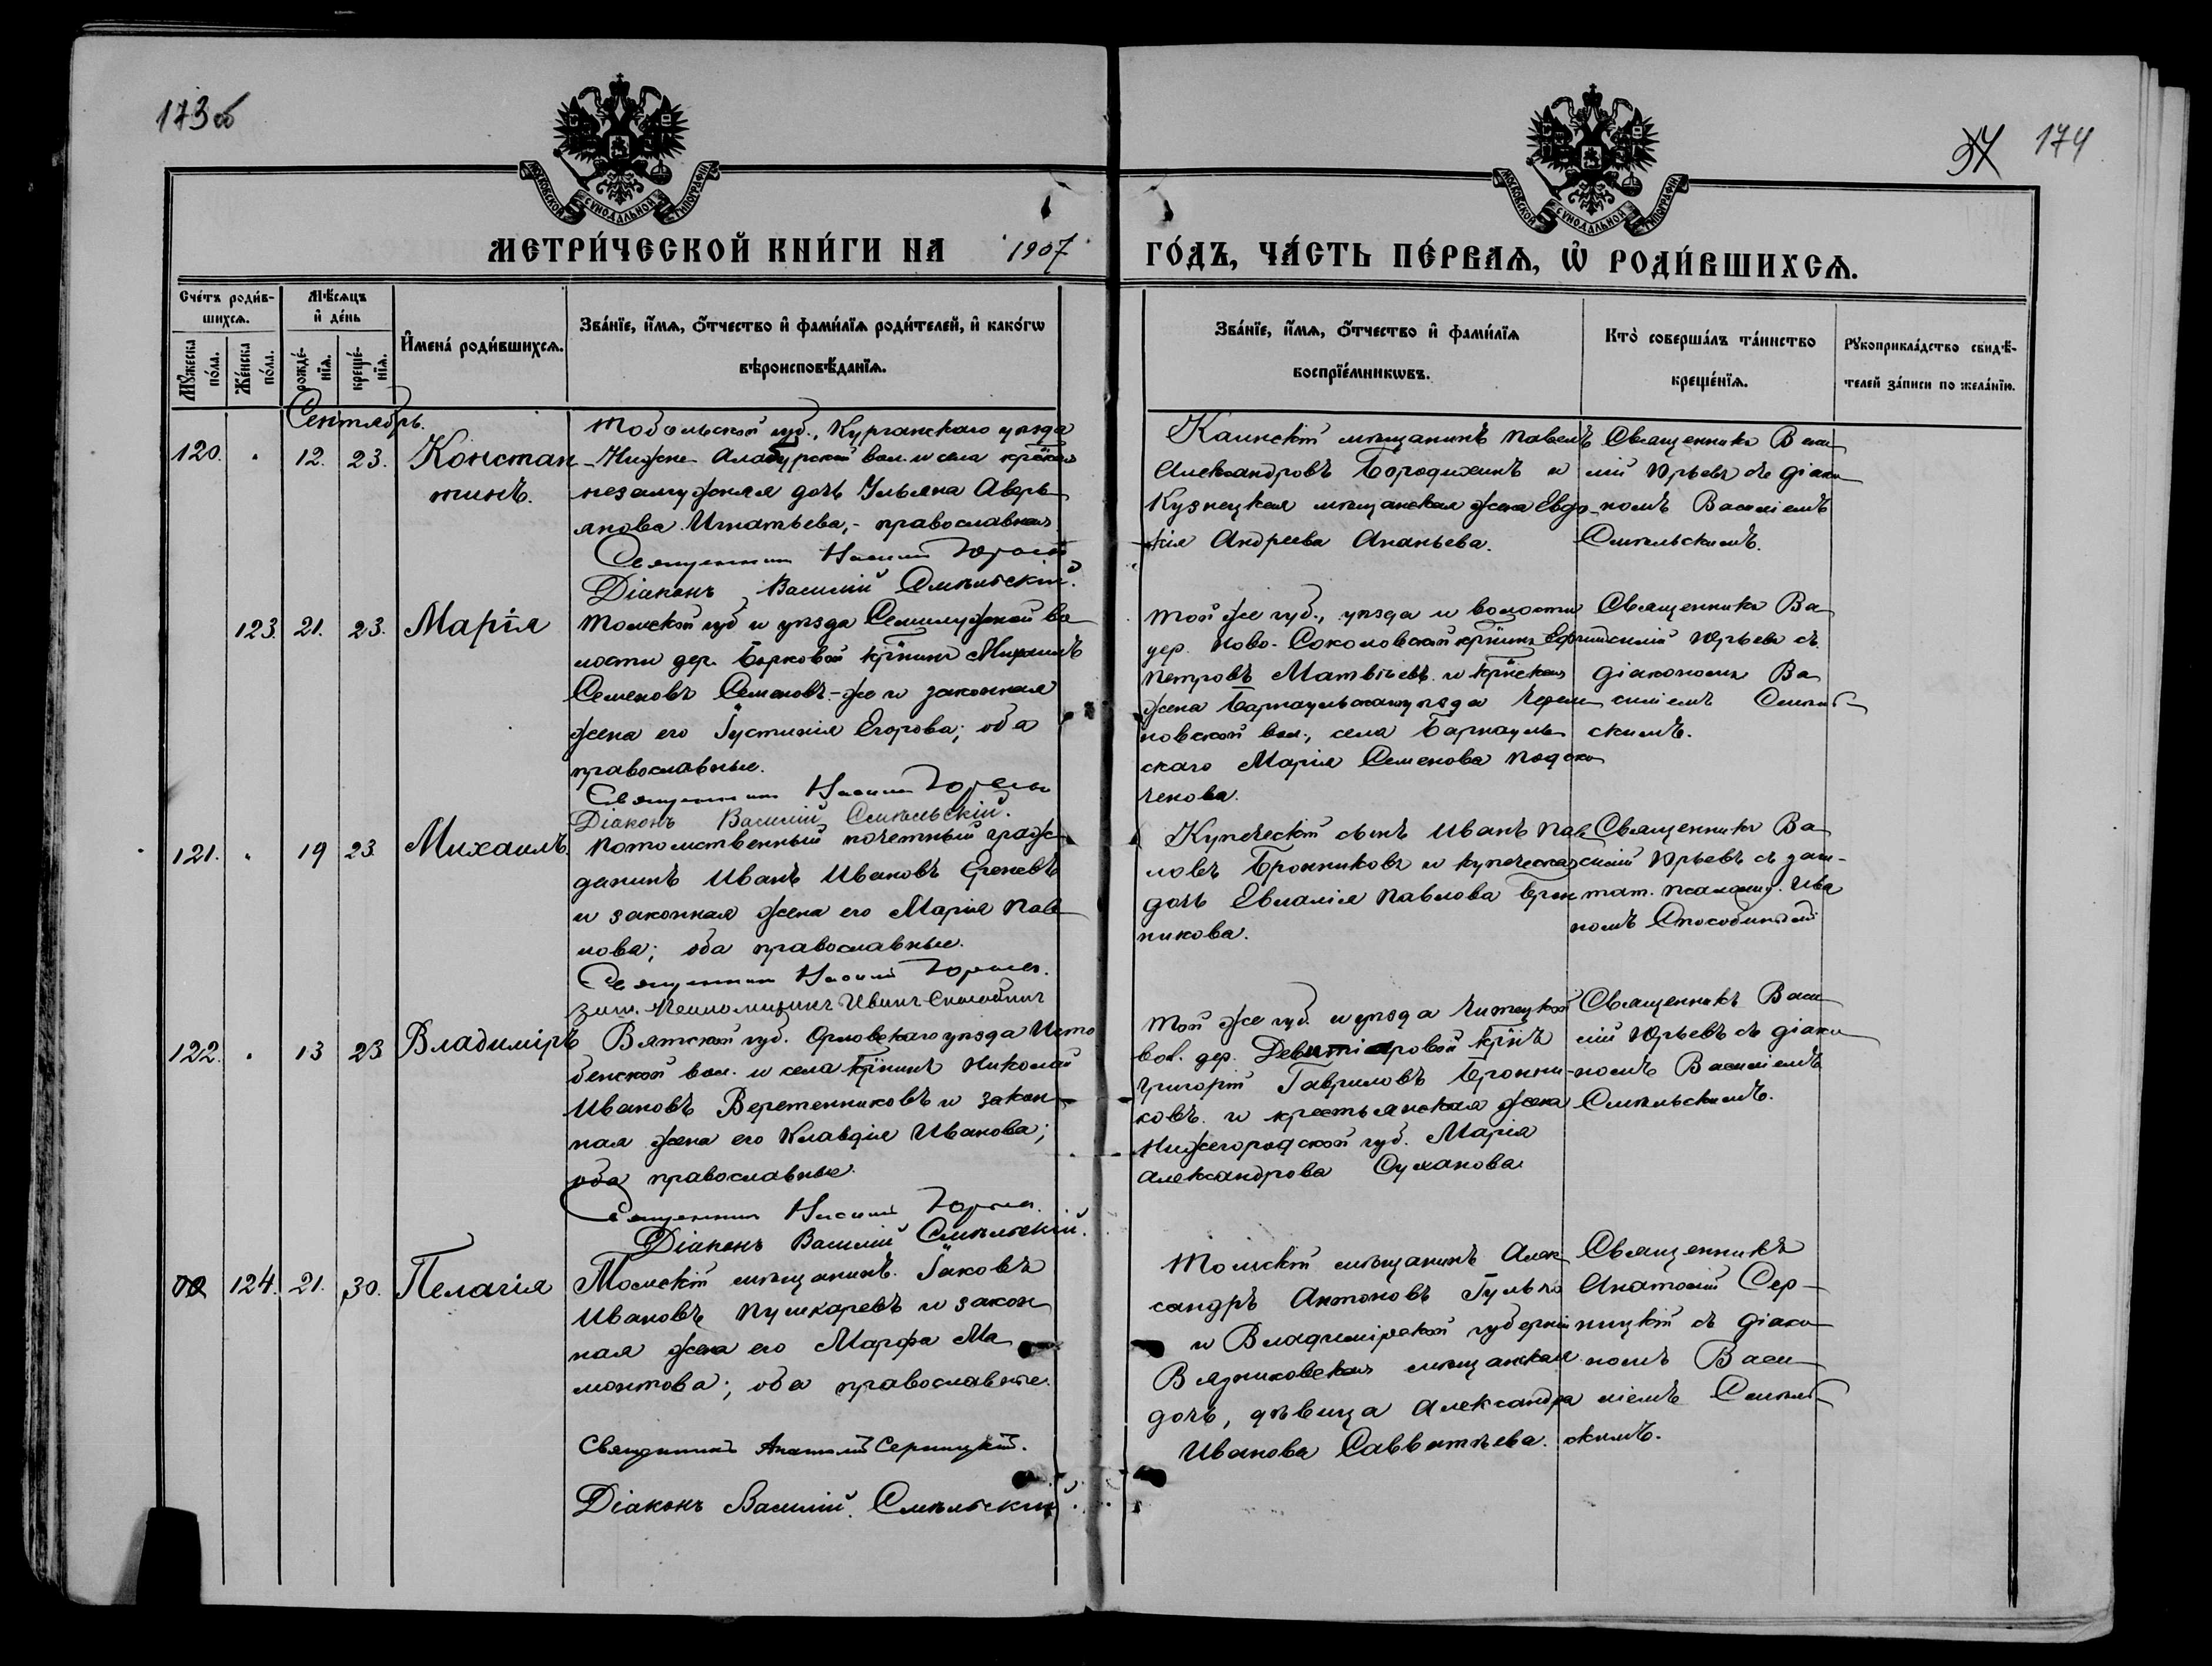 173об
97 174
МОСКОВСКОЙ СѴНОДАЛЬНОЙ ТИПОГРАФІИ
МОСКОВСКОЙ СѴНОДАЛЬНОЙ ТИПОГРАФІИ
МЕТРИ́ЧЕСКОЙ КНИ́ГИ НА 1907 ГО́ДЪ, ЧА́СТЬ ПЕ́РВАЯ, Ѡ РОДИ́ВШИХСѦ.
Сче́тъ роди́в-
шихсѧ.
Мѣ́сяцъ
и де́нь
Мꙋ́жеска
по́ла.
Же́нска
по́ла.
рожде́-
нїѧ.
креще́-
нїѧ.
Имена̀ роди́вшихсѧ.
Зва́нїе, и́мѧ, ѻ́тчество и фами́лїѧ роди́телей, и како́гѡ
вѣроисповѣ́данїѧ.
Зва́нїе, и́мѧ, ѻ́тчество и фами́лїѧ
воспрїе́мникѡвъ.
Кто̀ соверша́лъ та́инство
креще́нїѧ.
Рꙋкоприкла́дство свидѣ́-
телей за́писи по жела́нїю.
Сентябрь.
120. " 12. 23. Констан
тинъ.
Тобольской губ., Курганскаго уѣзда
Нижне- Алабугской вол. и села крēская
незамужняя дочь Ульяна Аверь
янова Игнатьева,- православная
Священник Юрьев
Діаконъ Василій Смѣльскій.
Каинскій мѣщанинъ Павелъ
Александровъ Бородихинъ и
Кузнецкая мѣщанская жена Евдо
кія Андреева Ананьева.
Священникъ Васи
лій Юрьевъ съ діако
номъ Василіемъ
Смѣльскимъ.
123. 21. 23. Марія
Томской губ и уѣзда Семилужной во
лости дер. Борковой крїнинъ Михаилъ
Семеновъ Семеновъ-же и законная
жена его Іустинія Егорова; оба
православные.
Священник Юрьев
Діаконъ Василій Смѣльскій.
Той же губ., уѣзда и волости
дер. Ново- Соколовской крїнинъ
Петровъ Матвѣевъ и крїнская
жена Барнаульскаго уѣзда
новской вол., села Барнауль
скаго Марія Семенова
ченова.
Священникъ Ва
силій Юрьевъ съ
діакономъ Ва
силіемъ Смѣль
скимъ.
121. " 19 23. Михаилъ.
Потомственный почетный граж
данинъ Иванъ Ивановъ Ереневъ
и законная жена его Марія Пав
лова; оба православные.
Священник Юрьев.
Купеческій сынъ Иванъ Пав
ловъ Бронниковъ и купеческая
дочь Евлалія Павлова Брон
никова.
Священникъ Ва
силій Юрьевъ съ заш-
тат. псаломщ. Ива
номъ Способинымъ
122. " 13 23 Владиміръ
Вятской губ. Орловскаго уѣзда Исто
бенской вол. и села крїнинъ Николай
Ивановъ Веретенниковъ и закон
ная жена его Клавдія Иванова;
оба православные.
Священник Юрьев.
Діаконъ Василій Смѣльскій.
Той же губ. и уѣзда
вол. дер. крїнъ
Григорій Гавриловъ Бронни
ковъ и крестьянская жена
Нижегородской губ. Марія
Александрова Суханова
Священникъ Васи
лій Юрьевъ съ діако
номъ Василіемъ
Смѣльскимъ.
124. 21. 30. Пелагія
Томскій мѣщанинъ Іаковъ
Ивановъ Пушкаревъ и закон
ная жена его Марфа Ма
монтова; оба православные.
Священникъ Анатолій Серницкій.
Діаконъ Василій Смѣльскій.
Томскій мѣщанинъ Алек
сандръ Антоновъ Гулько
и Владимірской губерніи
Вязниковская мѣщанская
дочь, дѣвица Александра
Иванова Савватѣева.
Священникъ
Анатолій Сер-
ницкій съ діако
номъ Васи
ліемъ Смѣль
скимъ.